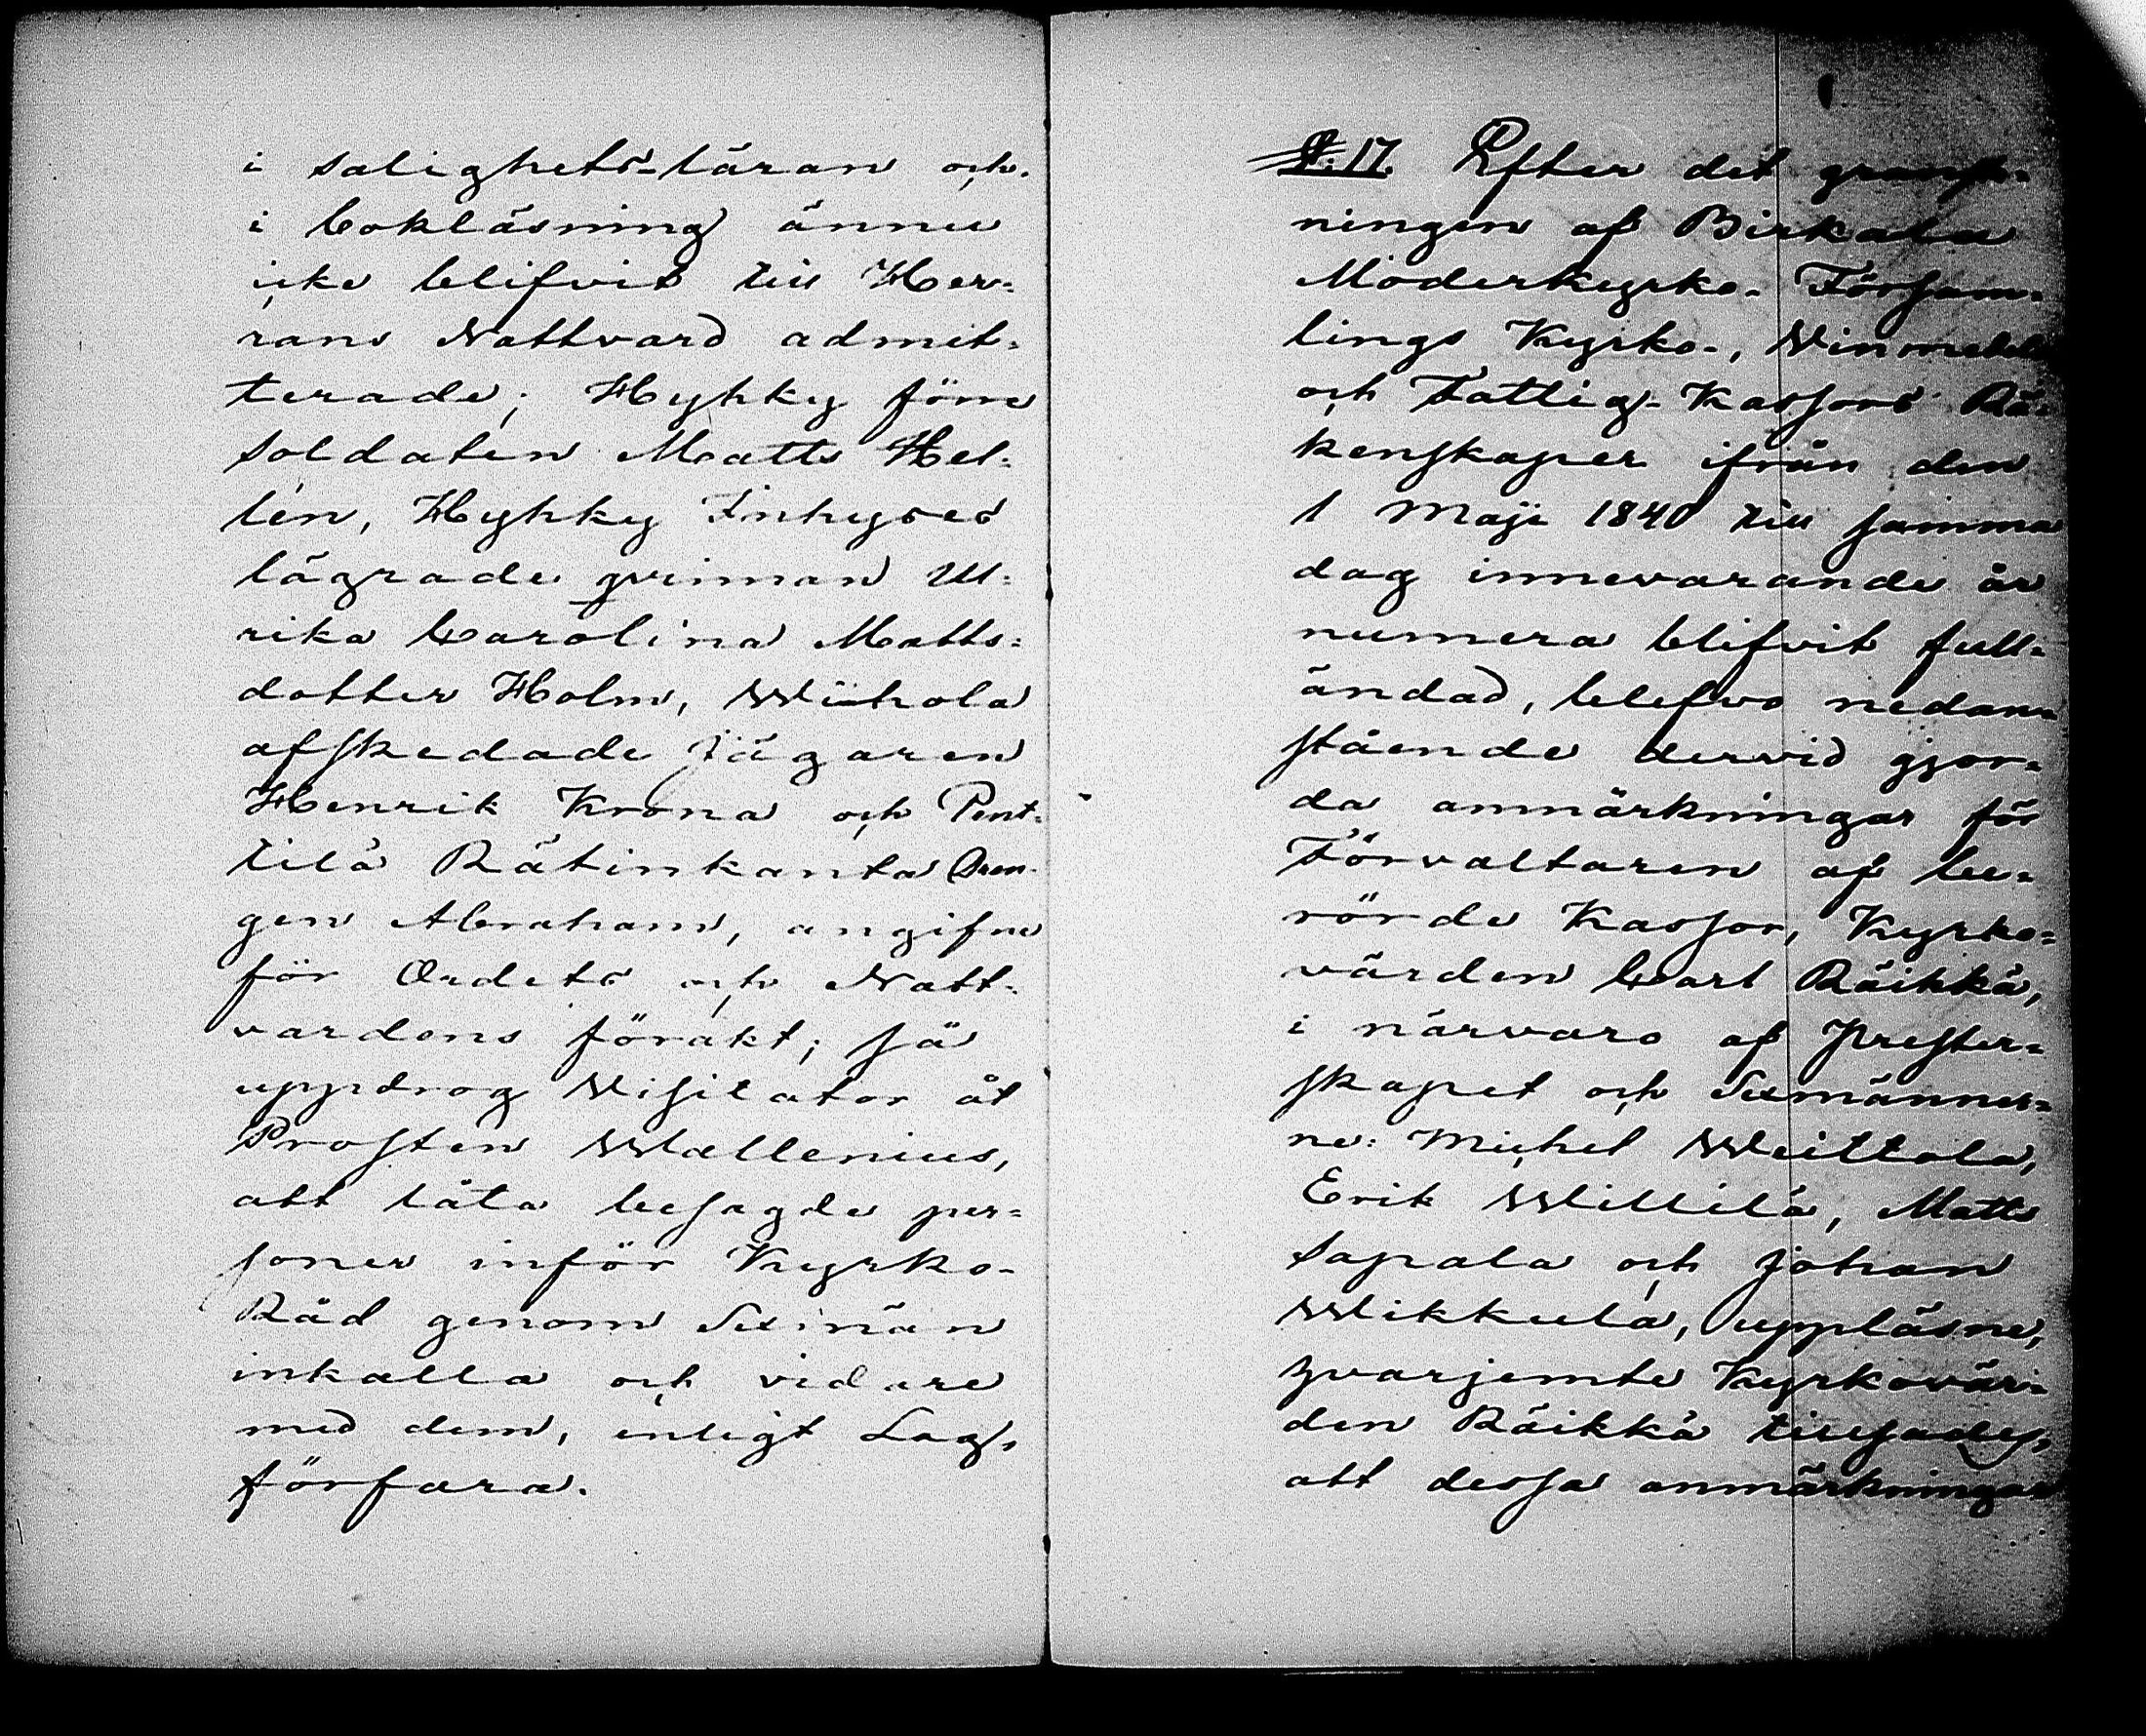 i salighets-läran och
i bokläsning ännu
icke blifvit till Her=
rans Nattvard admit=
terade; Hyhky förre
soldaten Matts Hel=
lén, Hyhky Inhyses
lägrade qvinnan Ul=
rika Carolina Matts=
dotter Holm, Wihola
afskedade Jägaren
Henrik Krona och Pent=
tilä Rätinkanta Dren=
gen Abraham, angifne
för Ordets och Natt=
vardens förakt; så
uppdrog Visitator åt
Prosten Wallenius,
att låta besagde per=
soner inför Kyrko-
Råd genom Sexmän
inkalla och vidare
med dem, enligt Lag,
förfara.
§. 17. Efter det gransk=
ningen af Birkala
Moderkyrko-Försam=
lings Kyrko-, Vinmedels
och Fattig-Kassors Rä=
kenskaper ifrån den
1 Maji 1840 till samma
dag innevarande år
numera blifvit full=
ändad, blefvo nedan=
stående dervid gjor=
da anmärkningar för
Förvaltaren af be=
rörde Kassor, Kyrko=
värden Carl Räikkä,
i närvaro af Prester=
skapet och Sexmänner=
ne: Michel Weittola,
Erik Willilä, Matts
Sapala och Johan
Wikkula, uppläsne,
hvarjemte Kyrkovär=
den Räikkä tillsades,
att dessa anmärkningar